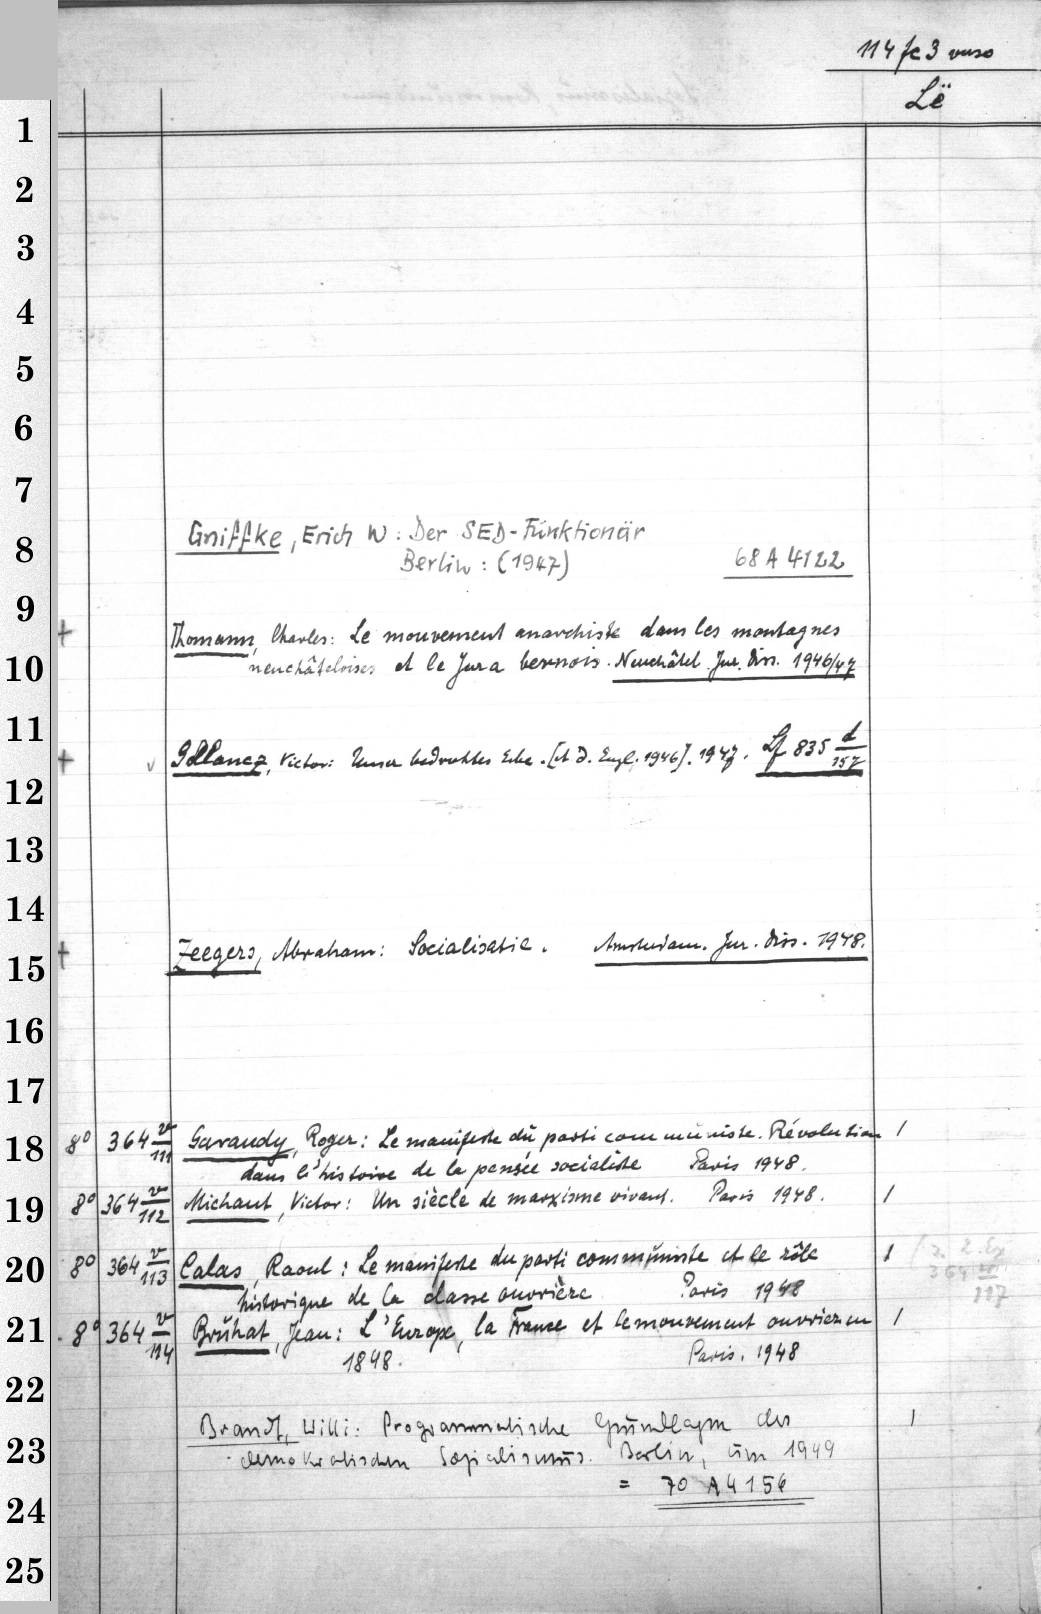 114 fc 3 verso
Lë
1
2
3
4
5
6
7
8
9
10
11
12
13
14
15
16
17
18
19
20
21
22
23
24
25
Gniffke, Erich W: Der SED-Funktionär
Berlin: (1947) 68 A 4122
+ Thomann, Charles: Le mouvement anarchiste dans les montagnes
neuchâteloises et le Jura bernois. Neuchâtel. Jur. Diss. 1946/47
+ v Gollancz, Victor: Unser bedrohtes Erbe. [A. d. Engl. 1946]. 1947. Lf 835 d/157
+ Zeegers, Abraham: Socialisatie. Amsterdam. Jur. Diss. 1948.
8° 364 v/111 Garaudy, Roger: Le manifeste du parti communiste. Révolution 1
dans l'histoire de la pensée socialiste Paris 1948.
8° 364 v/112 Michaut, Victor: Un siècle de marxisme vivant. Paris 1948. 1
8° 364 v/113 Calas, Raoul: Le manifeste du parti communiste et le rôle 1
historique de la classe ouvrière Paris 1948
8° 364 v/114 Bruhat, Jean: L'Europe, la France et le mouvement ouvrier en 1
1848. Paris. 1948
Brandt, Willi: Programmatische Grundlagen des 1
demokratischen Sozialismus. Berlin, um 1949
= 70 A 4156